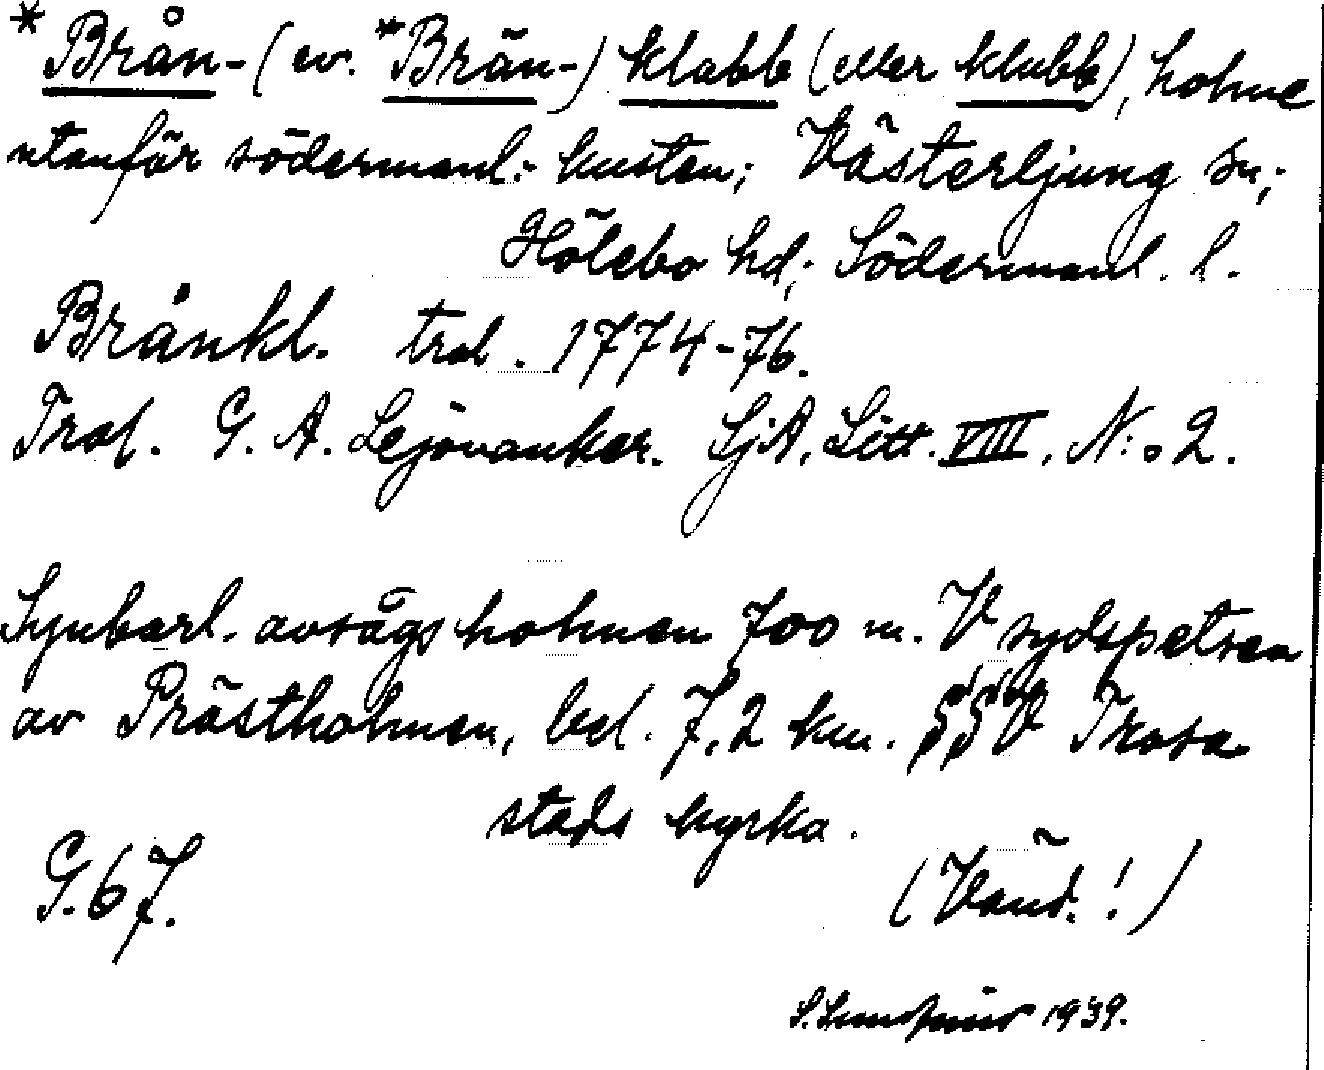 *Brån- (ev. *Brän-) klabb (eller klubb), holme
utanför södermanl:- kusten; Västerljung sn;
Hölebo hd; Södermanl. l.
Brånkl. trol. 1774-76.
Trol. G. A. Lejonanker. SjA. Litt. VIII. N:o 2.
Synbarl. avsågs holmen 700 m. V sydspetsen
av Prästholmen, bel. 7,2 km. V Trosa
stads kyrka.
G. 67. (Vänd.!)
1939.